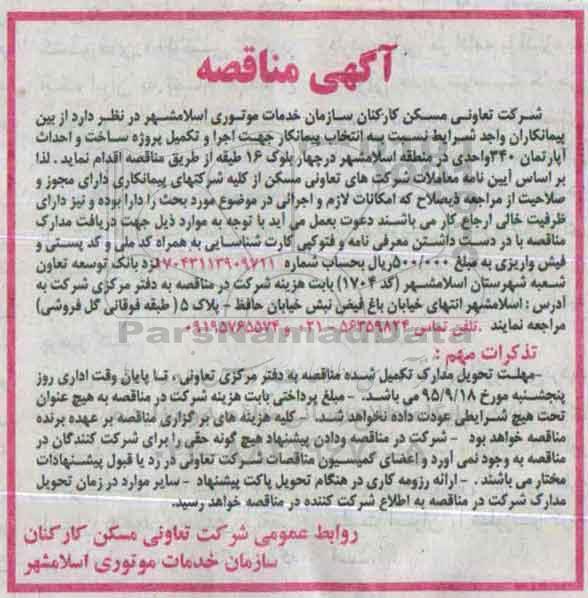 آگهی مناقصه
شرکت تعاونی مسکن کارکنان سازمان خدمات موتوری اسلامشهر در نظر دارد از بین
پیمانکاران واجد شرایط نسبت به انتخاب پیمانکار جهت اجرا و تکمیل پروژه ساخت و احداث
آپارتمان ۳۴۰واحدی در منطقه اسلامشهر درچهار بلوک ۱۶ طبقه از طریق مناقصه اقدام نماید . لذا
بر اساس آیین نامه معاملات شرکت های تعاونی مسکن از کلیه شرکتهای پیمانکاری دارای مجوز و
صلاحیت از مراجعه ذیصلاح که امکانات لازم و اجرائی در موضوع مورد بحث را دارا بوده و نیز دارای
ظرفیت خالی ارجاع کار می باشند دعوت بعمل می آید با توجه به موارد ذیل جهت دریافت مدارک
مناقصه با در دست داشتن معرفی نامه و فتوکپی کارت شناسایی به همراه کد ملی و کد پستی و
فیش واریزی به مبلغ ۵۰۰/۰۰۰ریال بحساب شماره ۱۷۰۴۳۱۱۳۹۰۹۷۱۱نزد بانک توسعه تعاون
شعبه شهرستان اسلامشهر (کد ۱۷۰۴) بابت هزینه شرکت در مناقصه به دفتر مرکزی شرکت به
آدرس : اسلامشهر انتهای خیابان باغ فیض نبش خیابان حافظ – پلاک ۵ ( طبقه فوقانی گل فروشی)
مراجعه نمایند .تلفن تماس ۵۶۳۵۹۸۲۴ – ۰۲۱ و ۰۹۱۹۵۷۶۵۵۷۴
ParsNamadData
تذکرات مهم :
-مهلت تحویل مدارک تکمیل شده مناقصه به دفتر مرکزی تعاونی، تا پایان وقت اداری روز
پنجشنبه مورخ ۹۵/۹/۱۸ می باشد. - مبلغ پرداختی بابت هزینه شرکت در مناقصه به هیچ عنوان
تحت هیچ شرایطی عودت داده نخواهد شد. - کلیه هزینه های برگزاری مناقصه بر عهده برنده
مناقصه خواهد بود - شرکت در مناقصه ودادن پیشنهاد هیچ گونه حقی را برای شرکت کنندگان در
مناقصه به وجود نمی آورد و اعضای کمیسیون مناقصات شرکت تعاونی در رد یا قبول پیشنهادات
مختار می باشند . - ارائه رزومه کاری در هنگام تحویل پاکت پیشنهاد - سایر موارد در زمان تحویل
مدارک شرکت در مناقصه به اطلاع شرکت کننده در مناقصه خواهد رسید.
روابط عمومی شرکت تعاونی مسکن کارکنان
سازمان خدمات موتوری اسلامشهر